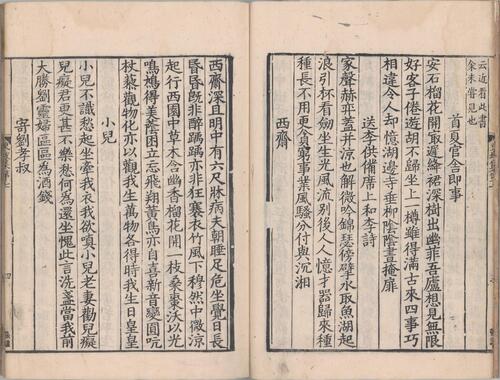 云近看此書
余未嘗見也
首夏官舍即事
安石榴花開最遲絳裙深樹出幽菲吾廬想見無限
好客子倦遊胡不歸坐上一樽雖得滿古來四事巧
相違令人却憶湖邊寺垂柳陰陰晝掩扉
送李供備席上和李詩
家聲赫奕蓋并涼也解微吟錦瑟傍擘水取魚湖起
浪引杯看劒坐生光風流別後人人憶才器歸來種
種長不用更貪窮事業風騷分付與沉湘
西齋
西齋深且明中有六尺牀病夫朝睡足危坐覺日長
昏昏既非醉踽踽亦非狂褰衣竹風下穆然中微涼
起行西園中草木含幽香榴花開一枝桑棗沃以光
鳴鳩得美蔭困立忘飛翔黃鳥亦自喜新音變圓吭
杖藜觀物化亦以觀我生萬物各得時我生日皇皇
小兒
小兒不識愁起坐牽我衣我欲嗔小兒老妻勸兒癡
兒癡君更甚不樂愁何爲還坐愧此言洗盞當我前
大勝劉靈婦區區爲酒錢
寄劉孝叔